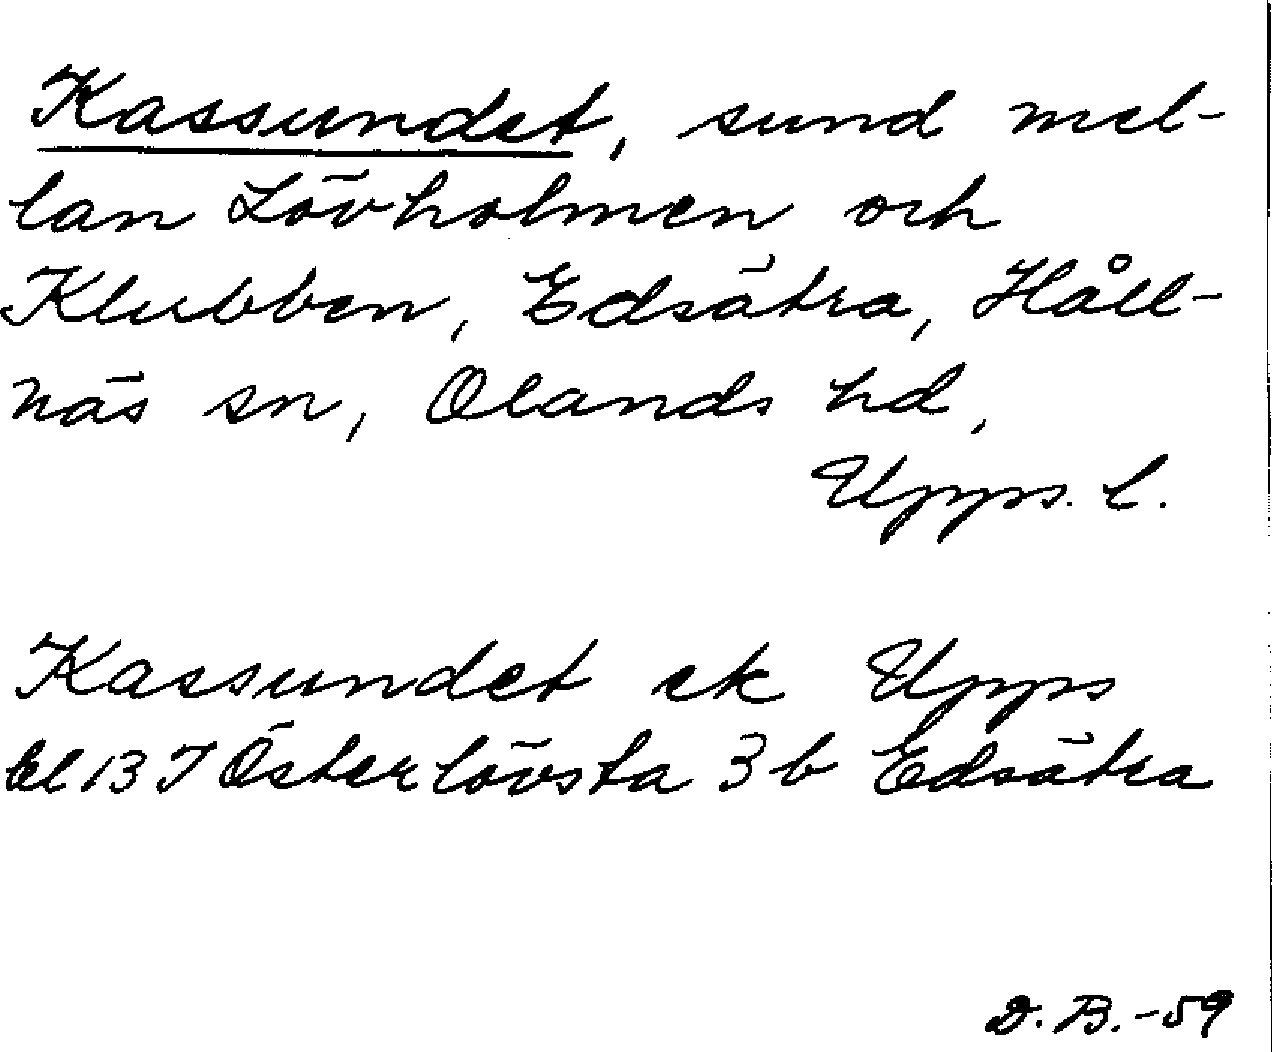 Kassundet, sund mel-
lan Lövholmen och
Klubben, Edsätra, Håll-
näs sn, Olands hd,
Upps. l.
Kassundet ek Upps
bl 13 I Österlövsta 3 b Edsätra
D. B. -59